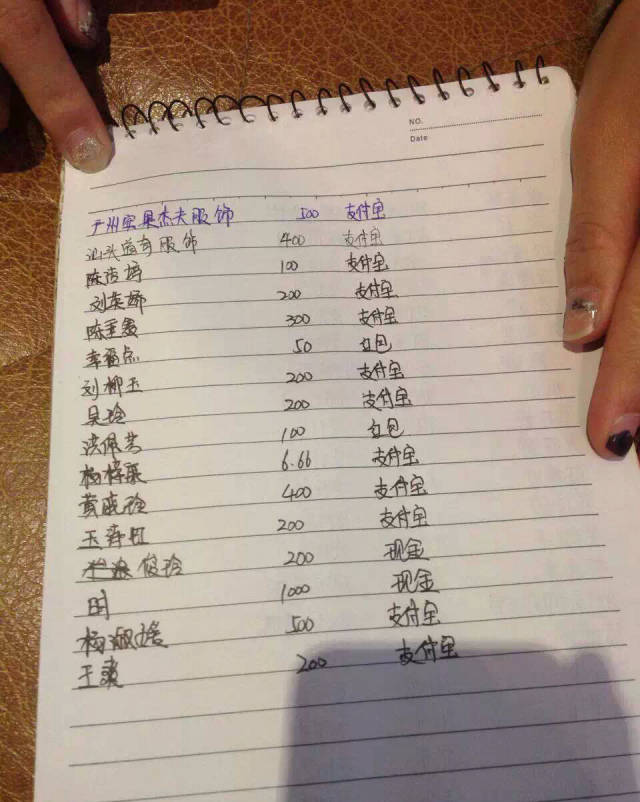 NO.
Date
广州宝果杰夫服饰 500 支付宝
汕头 服饰 400 支付宝
陈 100 支付宝
刘 娜 200 支付宝
陈 300 支付宝
幸福点 50 红包
刘柳玉 200 支付宝
吴玲 200 支付宝
洪佩 100 红包
杨梓 6.66 支付宝
黄晓玲 400 支付宝
玉 红 200 支付宝
俊玲 200 现金
明 1000 现金
杨淑媛 500 支付宝
王爽 200 支付宝